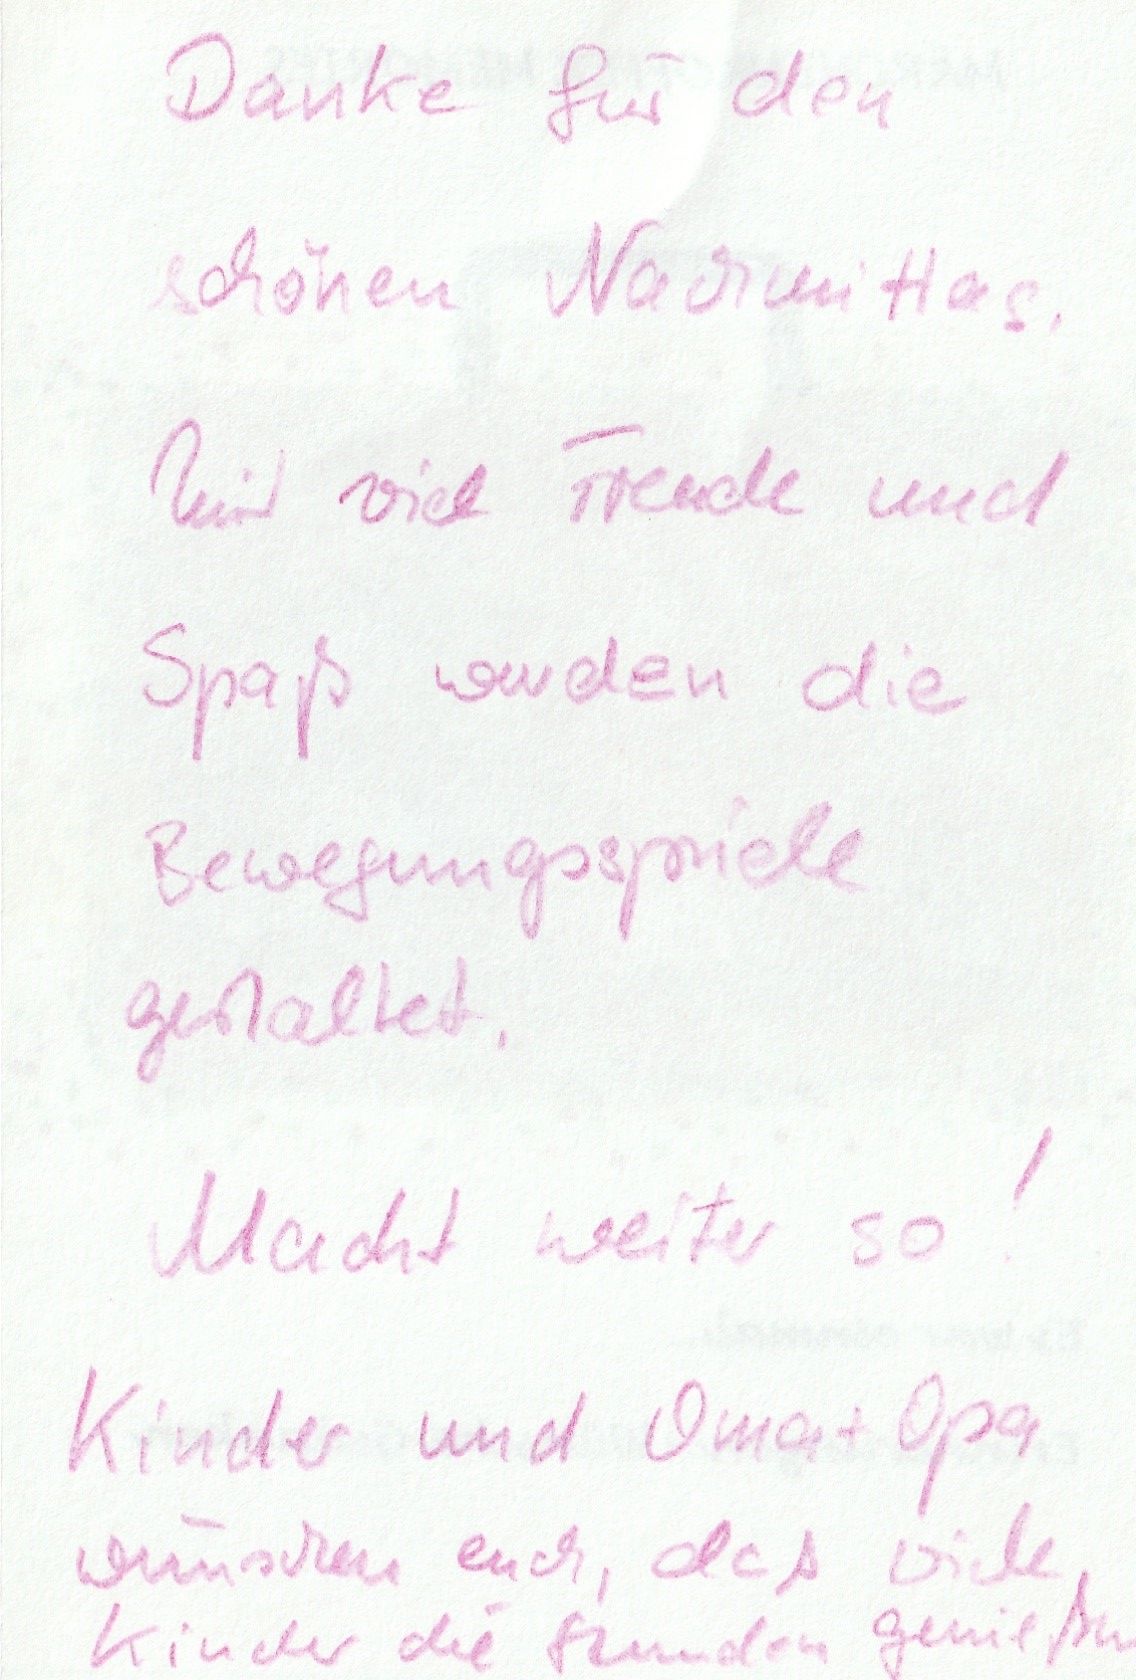 Danke für den
schönen Nachmittag.
Mit viel Freude und
Spaß wurden die
Bewegungsspiele
gestaltet.
Macht weiter so!
Kinder und Oma + Opa
wünschen euch, das viele
Kinder die Stunden genießen